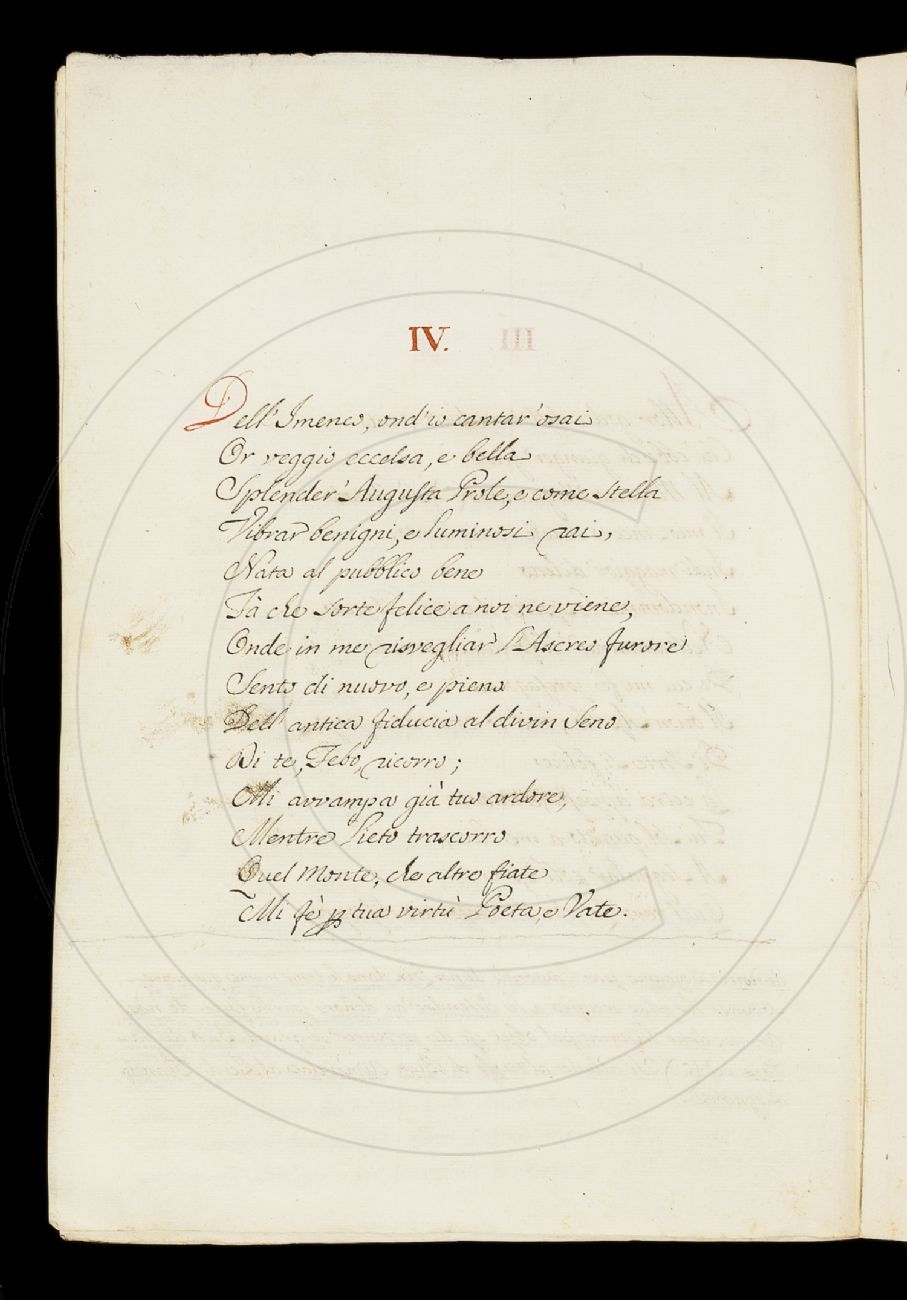 IV.
Dell' Imeneo, ond' io cantar' osai
Or veggio eccelsa, e bella
Splender' Augusta Prole, e come stella
Vibrar benigni, e luminosi rai,
Nata al pubblico bene
Fà che sorte felice a noi ne viene,
Onde in me risvegliar l'Ascreo furore
Sento di nuovo, e pieno
Dell' antica fiducia al divin seno
Di te, Febo, ricorro;
Mi avvampa già tuo ardore,
Mentre lieto trascorro
Quel Monte, che altre fiate
Mi fè ꝑ tua virtù Poeta, e Vate.